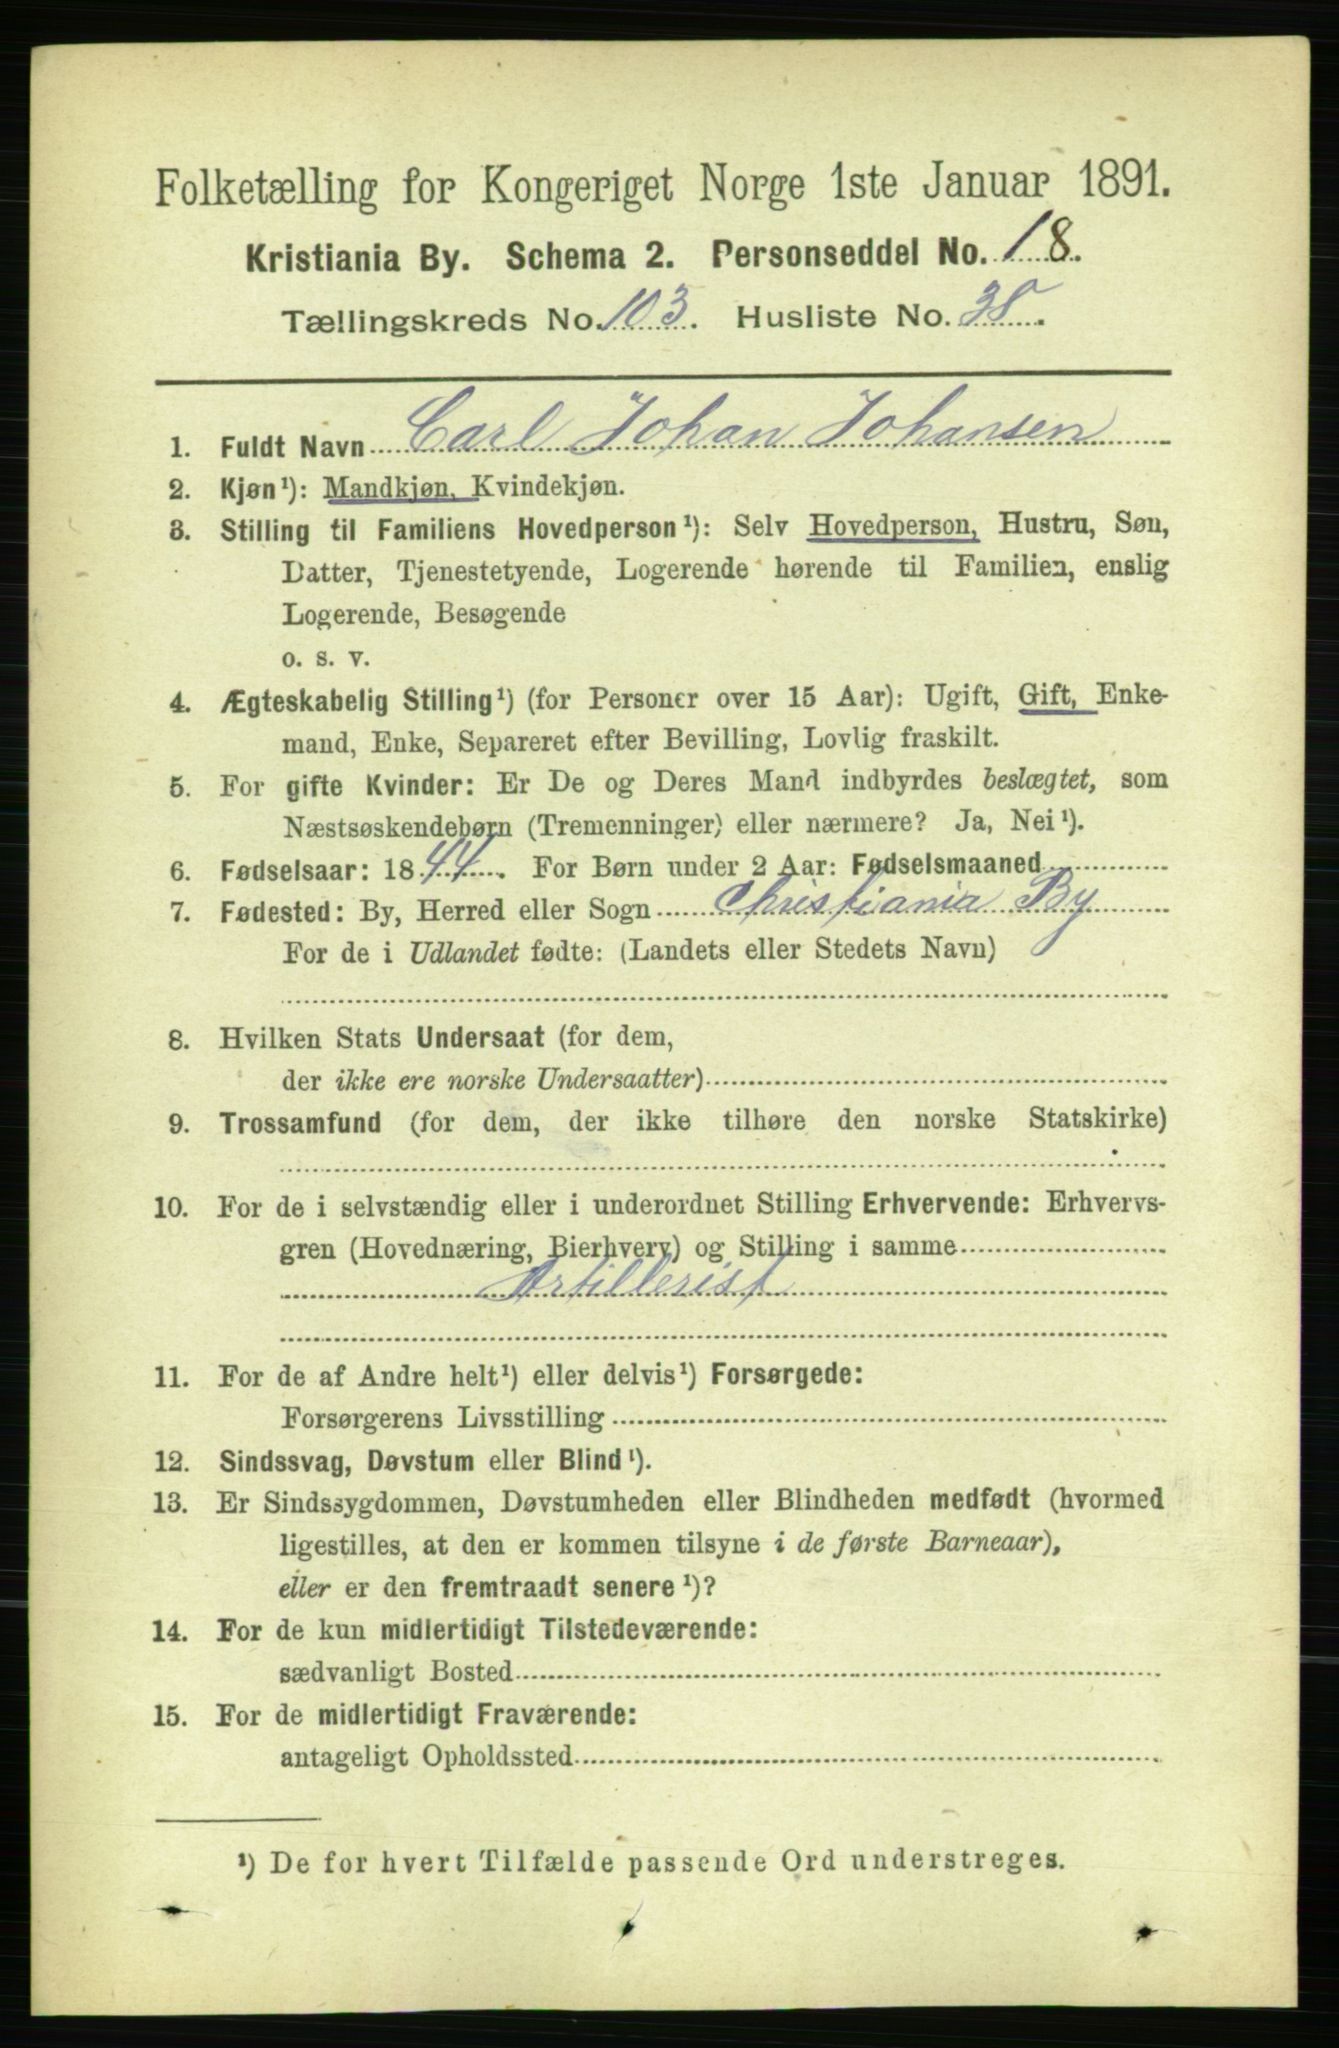 Folketælling for Kongeriget Norge 1ste Januar 1891.
Kristiania By. Schema 2. Personseddel No. 18.
Tællingskreds No. 103. Husliste No. 38.
1. Fuldt Navn Carl Johan Johansen
2. Kjøn¹): Mandkjøn, Kvindekjøn.
3. Stilling til Familiens Hovedperson¹): Selv Hovedperson, Hustru, Søn,
Datter, Tjenestetyende, Logerende hørende til Familien, enslig
Logerende, Besøgende
o. s. v.
4. Ægteskabelig Stilling¹) (for Personer over 15 Aar): Ugift, Gift, Enke-
mand, Enke, Separeret efter Bevilling, Lovlig fraskilt.
5. For gifte Kvinder: Er De og Deres Mand indbyrdes beslægtet, som
Næstsøskendebørn (Tremenninger) eller nærmere? Ja, Nei¹).
6. Fødselsaar: 1844. For Børn under 2 Aar: Fødselsmaaned
7. Fødested: By, Herred eller Sogn Christiania By
For de i Udlandet fødte: (Landets eller Stedets Navn)
8. Hvilken Stats Undersaat (for dem,
der ikke ere norske Undersaatter)
9. Trossamfund (for dem, der ikke tilhøre den norske Statskirke)
10. For de i selvstændig eller i underordnet Stilling Erhvervende: Erhvervs-
gren (Hovednæring, Bierhverv) og Stilling i samme
Artillerist
11. For de af Andre helt¹) eller delvis¹) Forsørgede:
Forsørgerens Livsstilling
12. Sindssvag, Døvstum eller Blind¹).
13. Er Sindssygdommen, Døvstumheden eller Blindheden medfødt (hvormed
ligestilles, at den er kommen tilsyne i de første Barneaar),
eller er den fremtraadt senere¹)?
14. For de kun midlertidigt Tilstedeværende:
sædvanligt Bosted
15. For de midlertidigt Fraværende:
antageligt Opholdssted
¹) De for hvert Tilfælde passende Ord understreges.